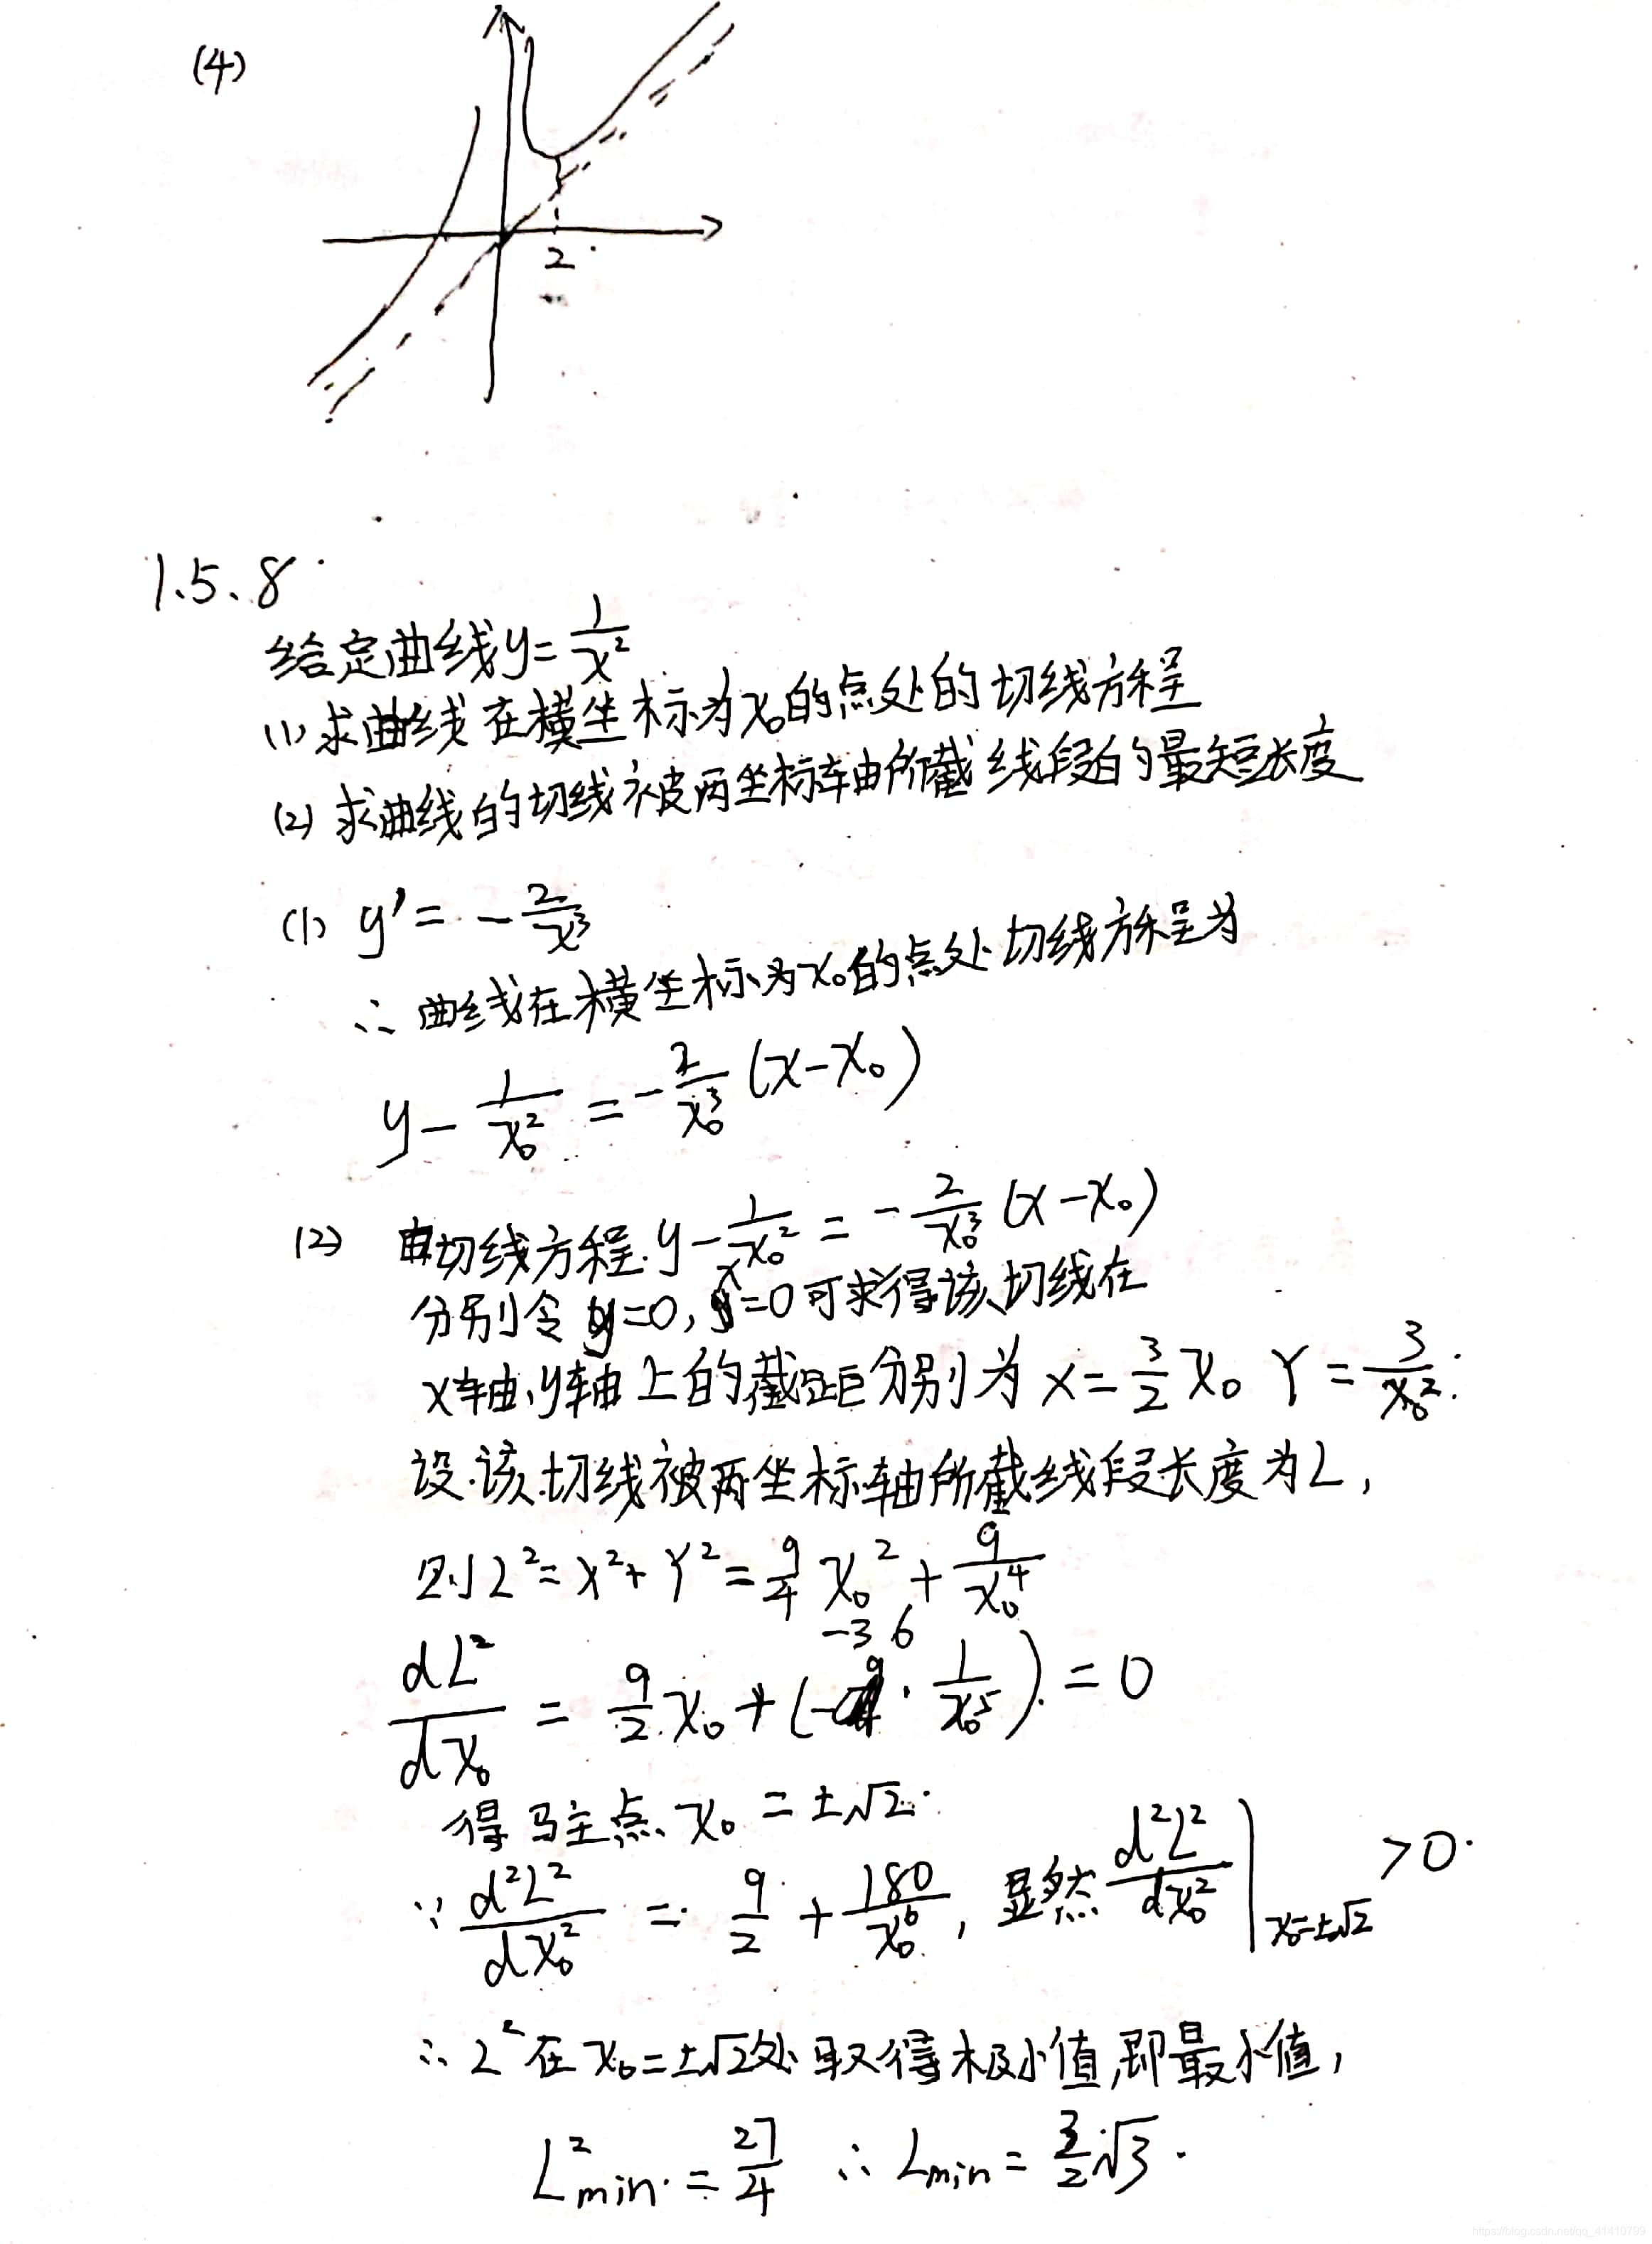 (4)
2
1.5.8
给定曲线y=1/x²
(1) 求曲线在横坐标为x₀的点处的切线方程
(2) 求曲线的切线被两坐标轴所截线段的最短长度
(1) y' = -2/x³
∴ 曲线在横坐标为x₀的点处切线方程为
y - 1/x₀² = -2/x₀³ (x-x₀)
(2) 由切线方程 y - 1/x₀² = -2/x₀³ (x-x₀)
分别令 y=0, x=0 可求得该切线在
x轴,y轴上的截距分别为 X = 3/2 x₀ Y = 3/x₀².
设该切线被两坐标轴所截线段长度为L,
则 L² = X² + Y² = 9/4 x₀² + 9/x₀⁴
dL²/dx₀ = 9/2 x₀ + (-36 · 1/x₀⁵) = 0
得驻点 x₀ = ±√2.
∵ d²L²/dx₀² = 9/2 + 180/x₀⁶, 显然 d²L²/dx₀² |x₀=±√2 > 0.
∴ L² 在 x₀=±√2处取得极小值,即最小值,
L²min. = 27/4 ∴ Lmin = 3/2 √3.
https://blog.csdn.net/qq_41410799